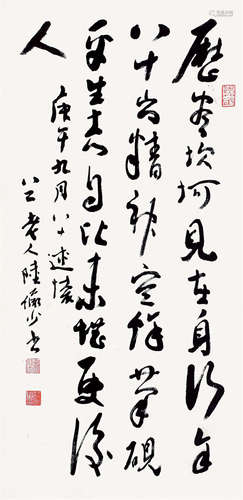 歷盡坎坷見在身行年
八十尚精神空餘筆硯
平生志自比未堪更後
人
庚午九月八十述懷
八二老人陸儼少書